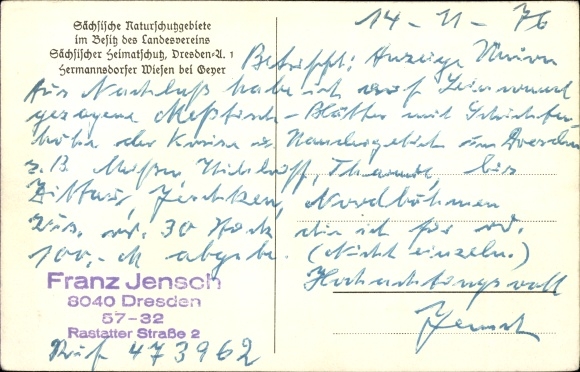 Sächsische Naturschutzgebiete
im Besitz des Landesvereins
Sächsischer Heimatschutz, Dresden-A. 1
Hermannsdorfer Wiesen bei Geyer
14-11-76
Betrifft: Anzeige Union
Aus Nachlaß habe ich auf Leinwand
gezogene Meßtisch-Blätter mit Schichten
höhe der Kreise u. Wandergebiet um Dresden
z. B. Meißen, Tharandt, bis
Zittau, Jeschken, Nordböhmen
zus. 30 Stck die ich für
100,- M abgebe. (Nicht einzeln.)
Hochachtungsvoll
Jensch
Franz Jensch
8040 Dresden
57-32
Rastatter Straße 2
Ruf 473962